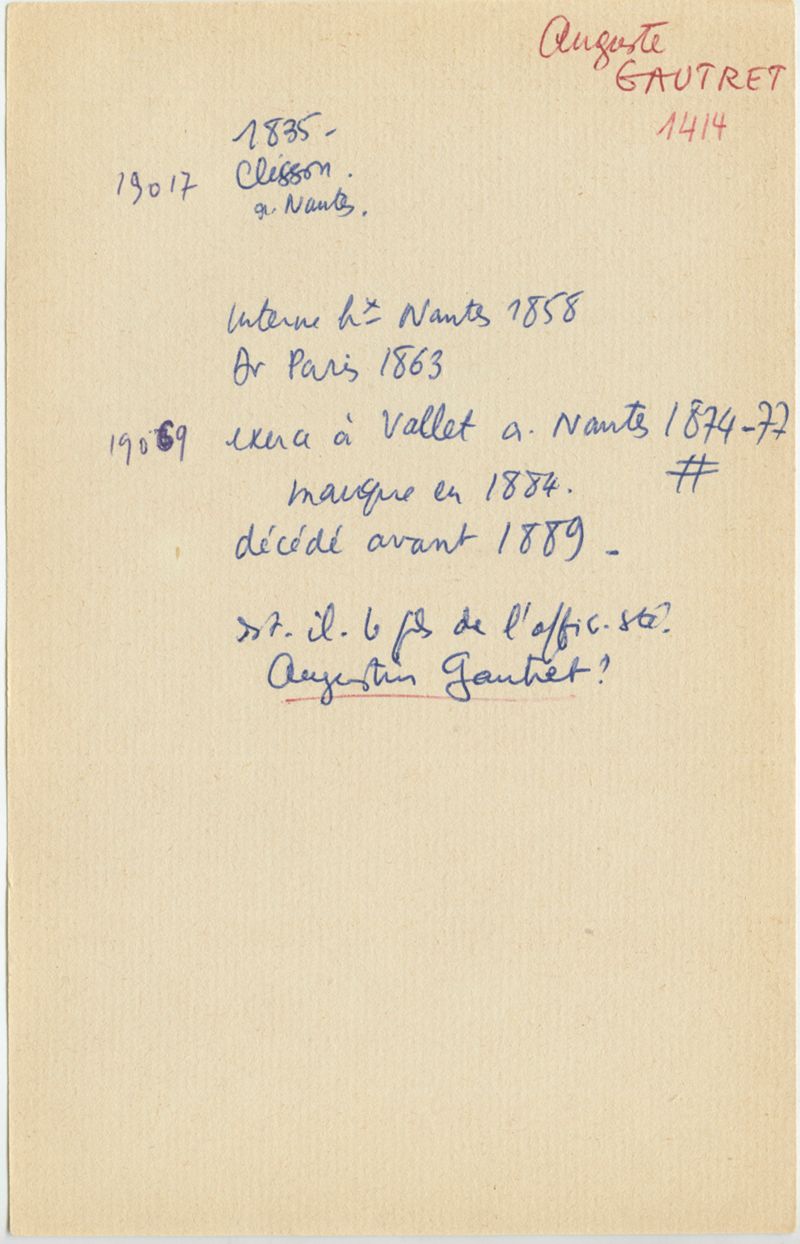 Auguste
GAUTRET
1414
1835-
19017 Clisson.
a. Nantes.
Interne hx Nantes 1858
Dr Paris 1863
19069 exerca à Vallet a. Nantes 1874-77
#
manque en 1884.
décédé avant 1889 -
est-il-le fils de l'offic. sté.
Augustin Gautret?